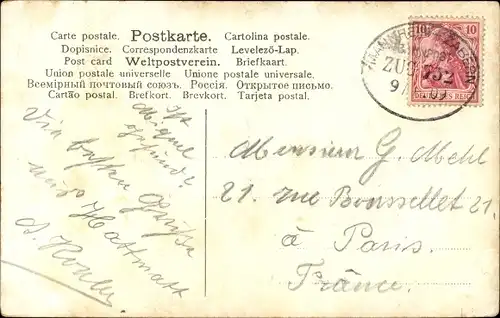 Carte postale. Postkarte. Cartolina postale.
Dopisnice. Correspondenzkarte. Levelező-Lap.
Post card Weltpostverein. Briefkaart.
Union postale universelle. Unione postale universale.
Всемірный почтовый союзъ. Россія. Открытое письмо.
Cartão postal. Brefkort. Brevkort. Tarjeta postal.
10 10
ZUG 752
DEUTSCHES REICH
Ist
Mignel
gesund?
Viele besten Grüße
aus Hattmatt
Monsieur G. Mehl
21. rue Bonsselet 21.
à Paris.
France.